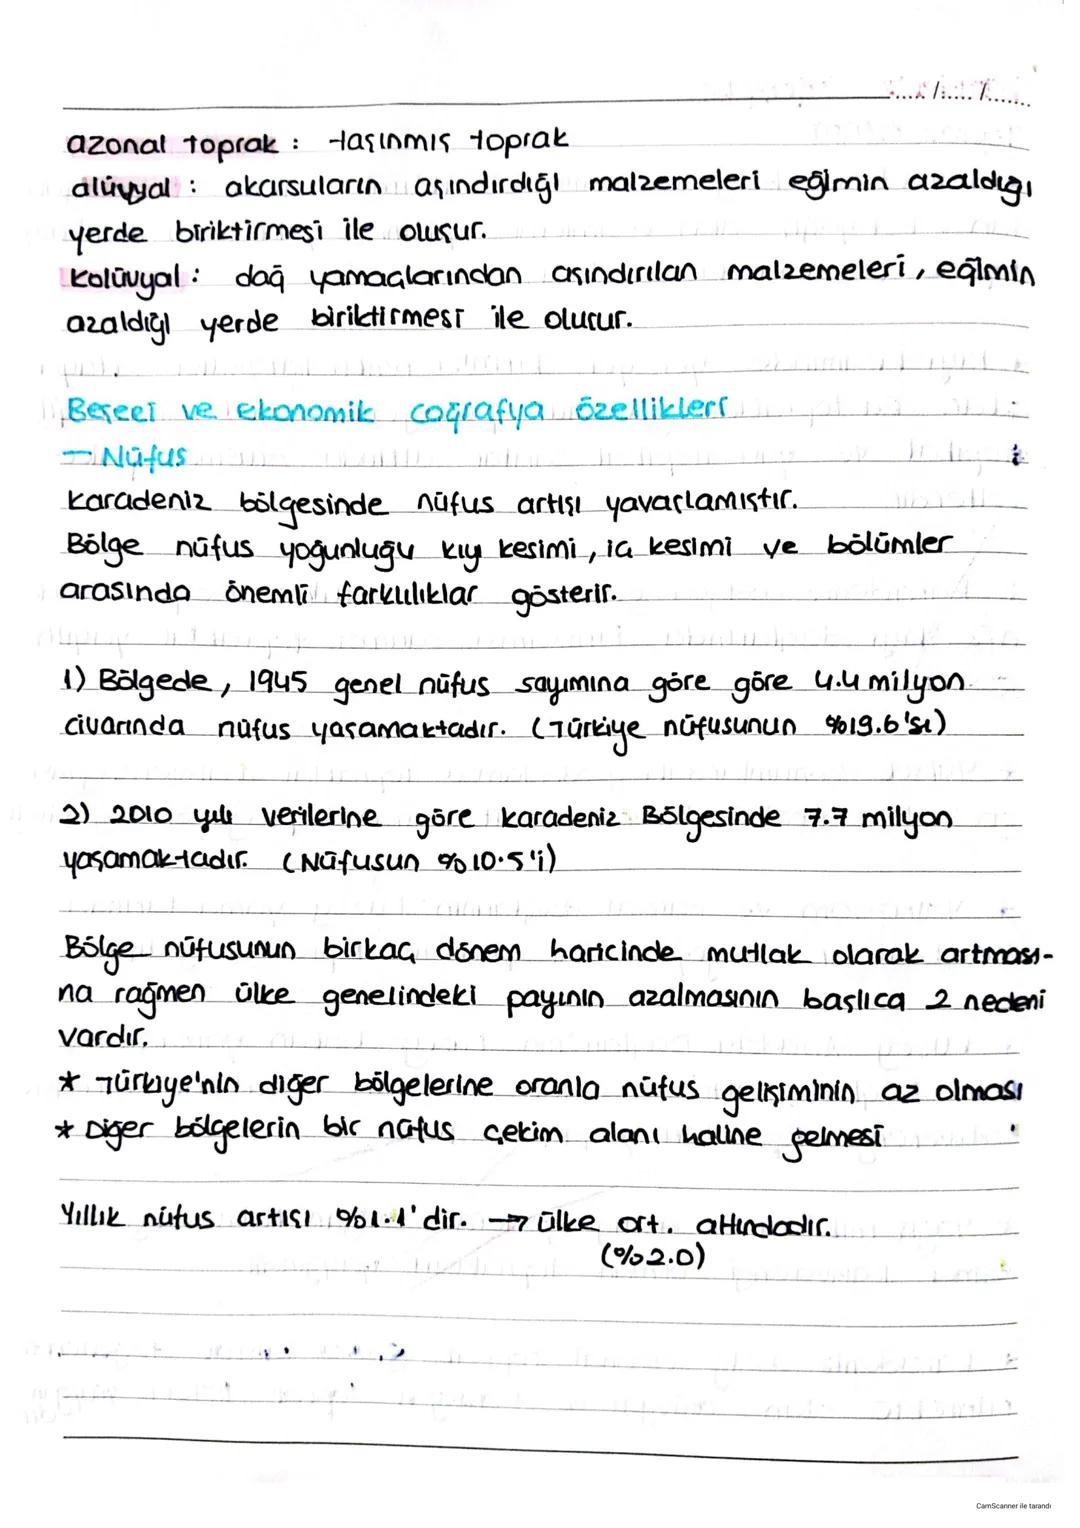 ..../..../.......
azonal toprak : taşınmış toprak
alüvyal : akarsuların aşındırdığı malzemeleri eğimin azaldığı
yerde biriktirmesi ile oluşur.
Kolüvyal : dağ yamaçlarından aşındırılan malzemeleri, eğimin
azaldığı yerde biriktirmesi ile oluşur.
Beşeri ve ekonomik coğrafya özellikleri
— Nüfus
Karadeniz bölgesinde nüfus artışı yavaşlamıştır.
Bölge nüfus yoğunluğu kıy kesimi, iç kesimi ve bölümler
arasında önemli farklılıklar gösterir.
1) Bölgede, 1945 genel nüfus sayımına göre göre 4.4 milyon
civarında nüfus yaşamaktadır. (Türkiye nüfusunun %19.6'sı)
2) 2010 yılı verilerine göre karadeniz Bölgesinde 7.7 milyon
yaşamaktadır. (Nüfusun %10.5'i)
Bölge nüfusunun birkaç dönem haricinde mutlak olarak artması-
na rağmen ülke genelindeki payının azalmasının başlıca 2 nedeni
vardır.
* Türkiye'nin diğer bölgelerine oranla nüfus gelişiminin az olması
* Diğer bölgelerin bir nüfus çekim alanı haline gelmesi
Yıllık nüfus artışı %1.1'dir. → ülke ort. altındadır.
(%2.0)
CamScanner ile tarandı